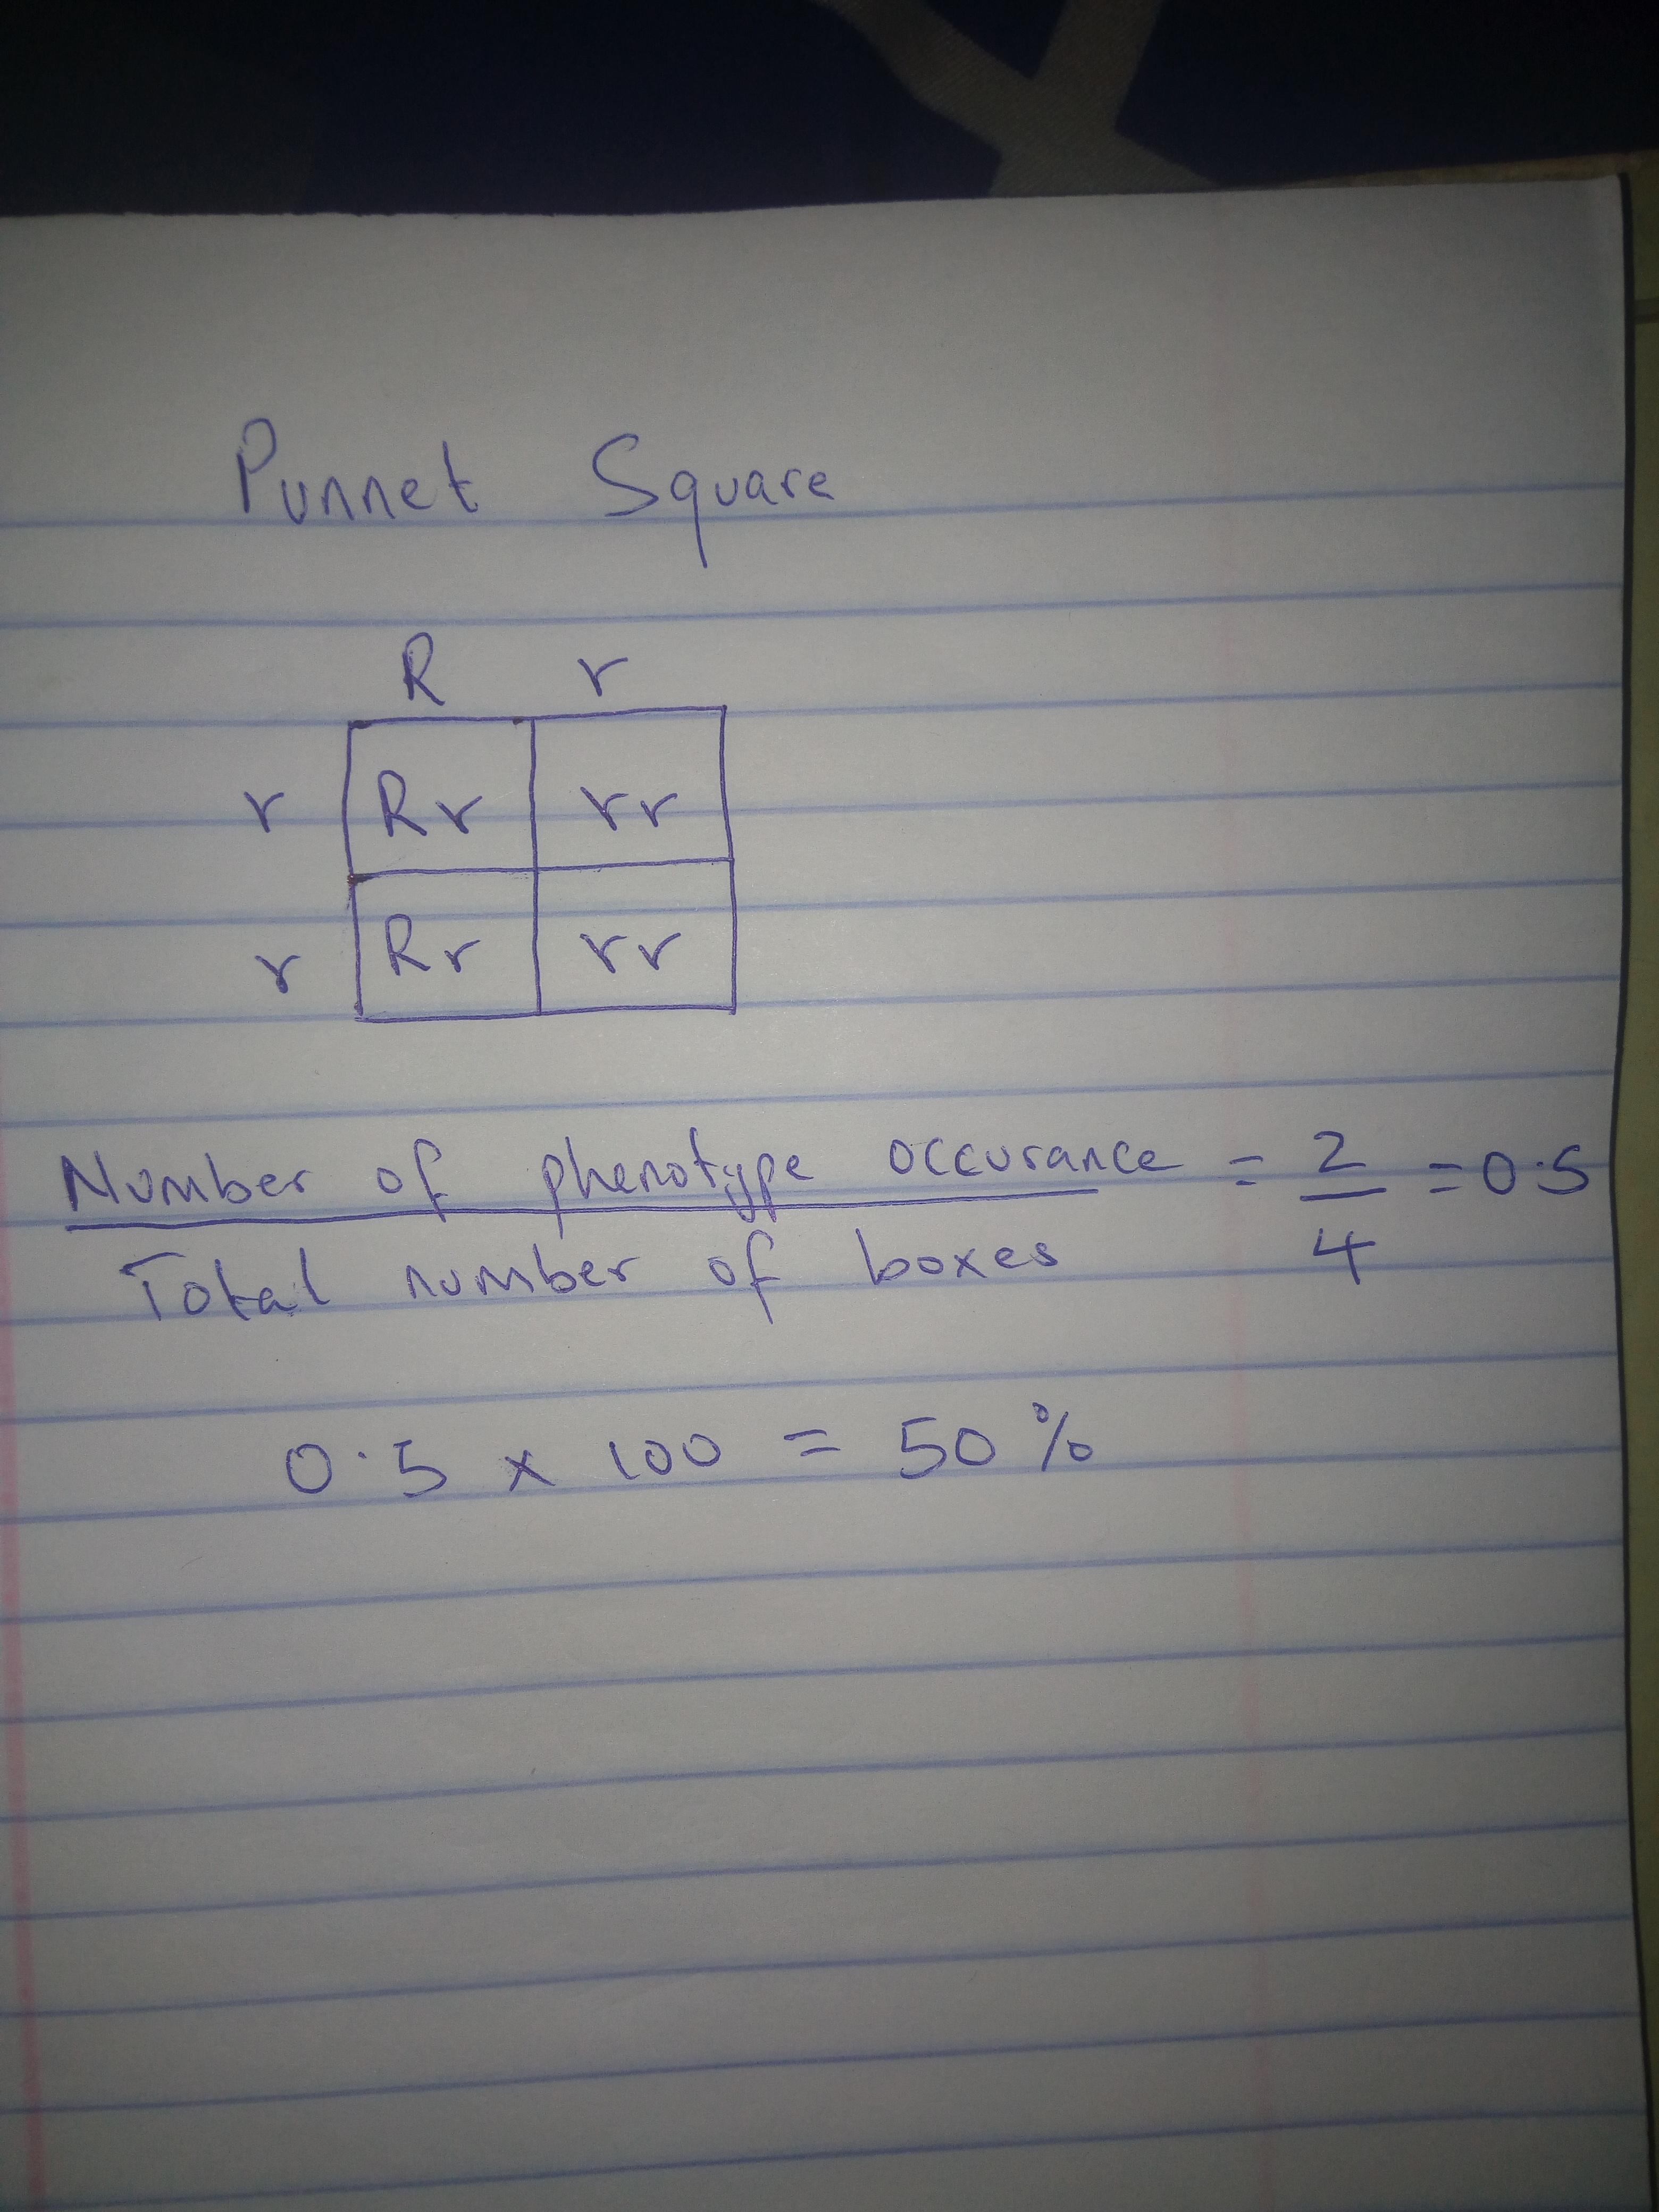 Punnet Square
R r
r Rr rr
r Rr rr
Number of phenotype occurance = 2 = 0.5
Total number of boxes 4
0.5 x 100 = 50%